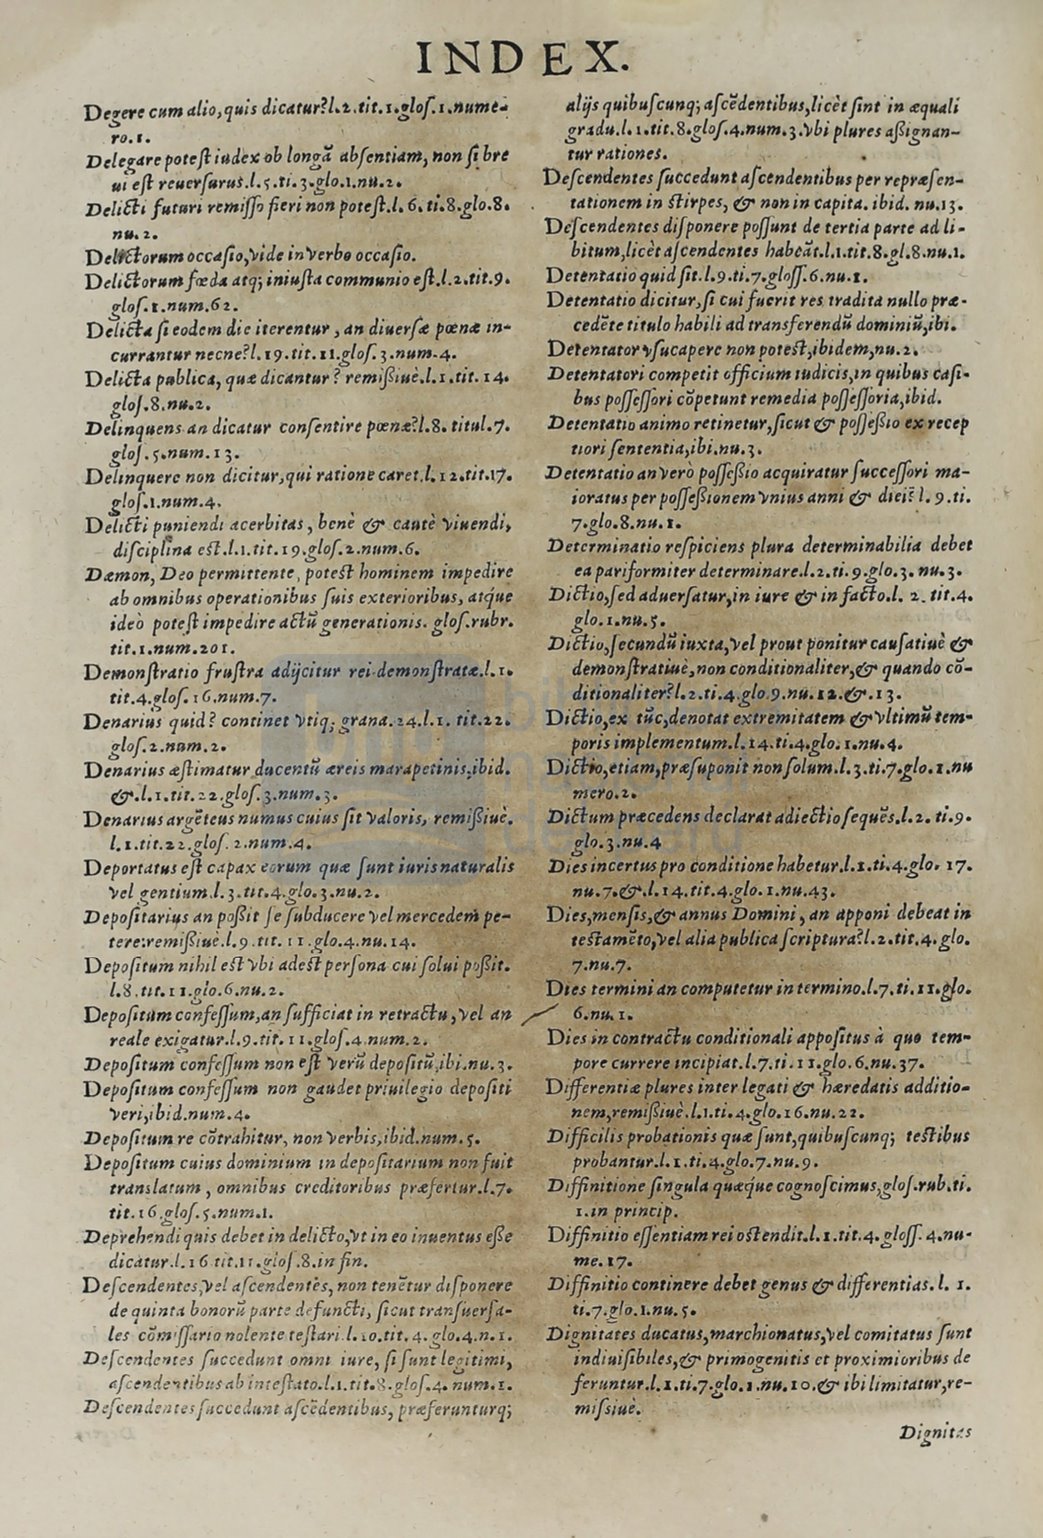 INDEX.
Degere cum alio, quis dicatur? l.2.tit.1.glos.1.nume-
ro.1.
Delegare potest iudex ob longā absentiam, non si bre
ui est reuersurus.l.5.ti.3.glo.1.nu.2.
Delicti futuri remissio fieri non potest.l.6.ti.8.glo.8.
nu.2.
Delictorum occasio, vide in verbo occasio.
Delictorum fœda atq; iniusta communio est.l.2.tit.9.
glos.1.num.62.
Delicta si eodem die iterentur, an diuersæ pœnæ in-
currantur necne? l.19.tit.11.glos.3.num.4.
Delicta publica, quæ dicantur? remißiuè.l.1.tit.14.
glos.8.nu.2.
Delinquens an dicatur consentire pœnæ? l.8.titul.7.
glos.5.num.13.
Delinquere non dicitur, qui ratione caret.l.12.tit.17.
glos.1.num.4.
Delicti puniendi acerbitas, benè & cautè viuendi,
disciplina est.l.1.tit.19.glos.2.num.6.
Dæmon, Deo permittente, potest hominem impedire
ab omnibus operationibus suis exterioribus, atque
ideo potest impedire actū generationis. glos.rubr.
tit.1.num.201.
Demonstratio frustra adijcitur rei demonstratæ.l.1.
tit.4.glos.16.num.7.
Denarius quid? continet vtiq; grana.24.l.1.tit.22.
glos.2.num.2.
Denarius æstimatur ducentū æreis marapetinis, ibid.
&.l.1.tit.22.glos.3.num.3.
Denarius argēteus numus cuius sit valoris, remißiuè.
l.1.tit.22.glos.2.num.4.
Deportatus est capax eorum quæ sunt iuris naturalis
vel gentium.l.3.tit.4.glo.3.nu.2.
Depositarius an poßit se subducere vel mercedem pe-
tere: remißiuè.l.9.tit.11.glo.4.nu.14.
Depositum nihil est vbi adest persona cui solui poßit.
l.8.tit.11.glo.6.nu.2.
Depositum confessum, an sufficiat in retractu, vel an
reale exigatur.l.9.tit.11.glos.4.num.2.
Depositum confessum non est verū depositū, ibi.nu.3.
Depositum confessum non gaudet priuilegio depositi
veri, ibid.num.4.
Depositum re cōtrahitur, non verbis, ibid.num.5.
Depositum cuius dominium in depositarium non fuit
translatum, omnibus creditoribus præfertur.l.7.
tit.16.glos.5.num.1.
Deprehendi quis debet in delicto, vt in eo inuentus eße
dicatur.l.16.tit.11.glos.8.in fin.
Descendentes, vel ascendentes, non tenētur disponere
de quinta bonorū parte defuncti, sicut transuersa-
les cōmissario nolente testari.l.10.tit.4.glo.4.n.1.
Descendentes succedunt omni iure, si sunt legitimi,
ascendentibus ab intestato.l.1.tit.8.glos.4.num.1.
Descendentes succedunt ascēdentibus, præferunturq;
alijs quibuscunq; ascēdentibus, licèt sint in æquali
gradu.l.1.tit.8.glos.4.num.3. vbi plures aßignan-
tur rationes.
Descendentes succedunt ascendentibus per repræsen-
tationem in stirpes, & non in capita. ibid. nu.13.
Descendentes disponere possunt de tertia parte ad li-
bitum, licèt ascendentes habeāt.l.1.tit.8.gl.8.nu.1.
Detentatio quid sit.l.9.ti.7.gloss.6.nu.1.
Detentatio dicitur, si cui fuerit res tradita nullo præ-
cedēte titulo habili ad transferendū dominiū, ibi.
Detentator vsucapere non potest, ibidem, nu.2.
Detentatori competit officium iudicis, in quibus casi-
bus possessori cōpetunt remedia possessoria, ibid.
Detentatio animo retinetur, sicut & posseßio ex recep
tiori sententia, ibi.nu.3.
Detentatio an verò posseßio acquiratur successori ma-
ioratus per posseßionem vnius anni & diei? l.9.ti.
7.glo.8.nu.1.
Determinatio respiciens plura determinabilia debet
ea pariformiter determinare.l.2.ti.9.glo.3.nu.3.
Dictio, sed aduersatur, in iure & in facto.l.2.tit.4.
glo.1.nu.5.
Dictio, secundū iuxta, vel prout ponitur causatiuè &
demonstratiuè, non conditionaliter, & quando cō-
ditionaliter? l.2.ti.4.glo.9.nu.12.&.13.
Dictio, ex tūc, denotat extremitatem & vltimū tem-
poris implementum.l.14.ti.4.glo.1.nu.4.
Dictio, etiam, præsuponit non solum.l.3.ti.7.glo.1.nu
mero.2.
Dictum præcedens declarat adiectio sequēs.l.2.ti.9.
glo.3.nu.4
Dies incertus pro conditione habetur.l.1.ti.4.glo.17.
nu.7.&.l.14.tit.4.glo.1.nu.43.
Dies, mensis, & annus Domini, an apponi debeat in
testamēto, vel alia publica scriptura? l.2.tit.4.glo.
7.nu.7.
Dies termini an computetur in termino.l.7.ti.11.glo.
6.nu.1.
Dies in contractu conditionali appositus à quo tem-
pore currere incipiat.l.7.ti.11.glo.6.nu.37.
Differentiæ plures inter legati & hæredatis additio-
nem, remißiuè.l.1.ti.4.glo.16.nu.22.
Difficilis probationis quæ sunt, quibuscunq; testibus
probantur.l.1.ti.4.glo.7.nu.9.
Diffinitione singula quæque cognoscimus, glos.rub.ti.
1.in princip.
Diffinitio essentiam rei ostendit.l.1.tit.4.gloss.4.nu-
me.17.
Diffinitio continere debet genus & differentias.l.1.
ti.7.glo.1.nu.5.
Dignitates ducatus, marchionatus, vel comitatus sunt
indiuisibiles, & primogenitis et proximioribus de
feruntur.l.1.ti.7.glo.1.nu.10.& ibi limitatur, re-
missiuè.
Dignitas